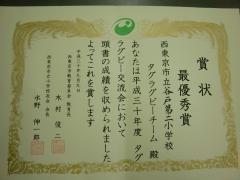 賞状
最優秀賞
西東京市立谷戸第二小学校
タグラグビーチーム 殿
あなたは平成三十年度 タグ
ラグビー交流会において
頭書の成績を収められました
よってこれを賞します
木村 俊二
水野 伸一郎